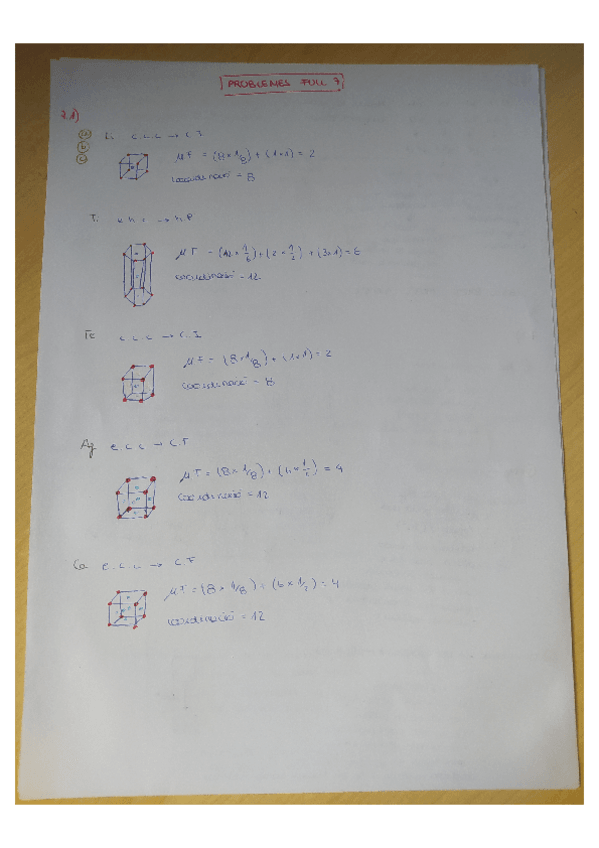 PROBLEMES FULL 7
7.1)
a
b
c
Li c.c.c → C.I
μF = (8 × 1/8) + (1×1) = 2
coordinació = 8
Ti → h.P
μF = (12 × 1/6) + (2 × 1/2) + (3×1) = 6
coordinació = 12
Fe c.c.c → C.I
μF = (8 × 1/8) + (1×1) = 2
coordinació = 8
Ag e.c.c → C.F
μF = (8 × 1/8) + (6 × 1/2) = 4
coordinació = 12
Ca e.c.c. → C.F
μF = (8 × 1/8) + (6 × 1/2) = 4
coordinació = 12